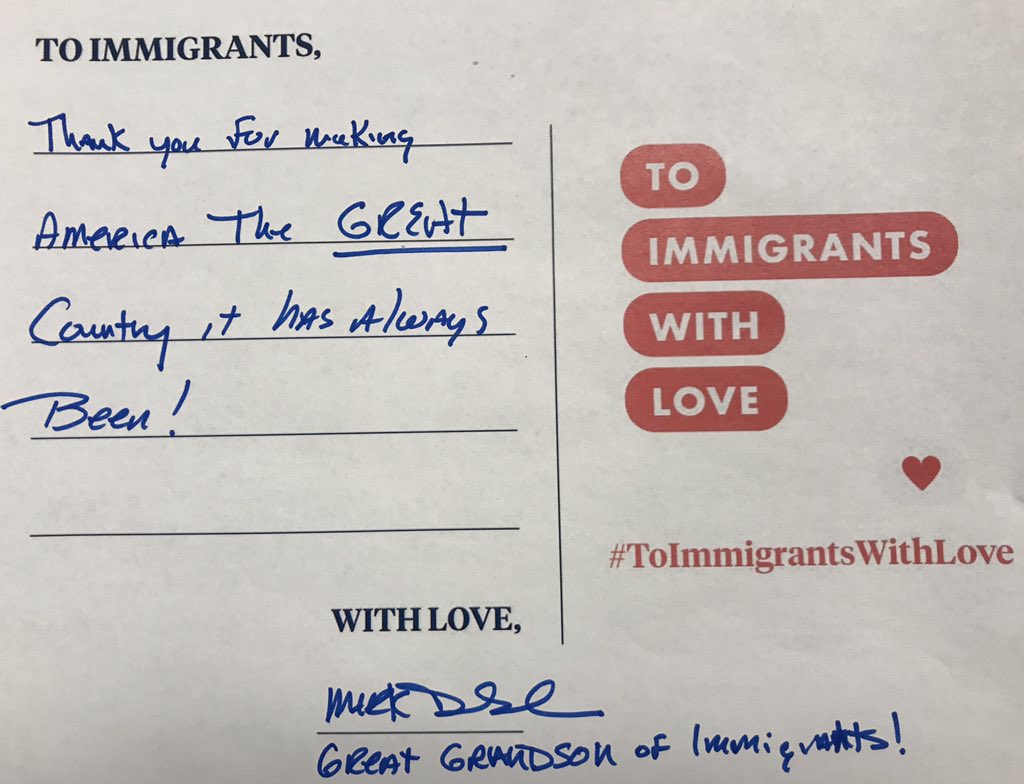 TO IMMIGRANTS,
Thank you for making
America The GREAT
Country it has Always
Been!
WITH LOVE,
Mark
GREAT GRANDSON of Immigrants!
TO
IMMIGRANTS
WITH
LOVE
#ToImmigrantsWithLove